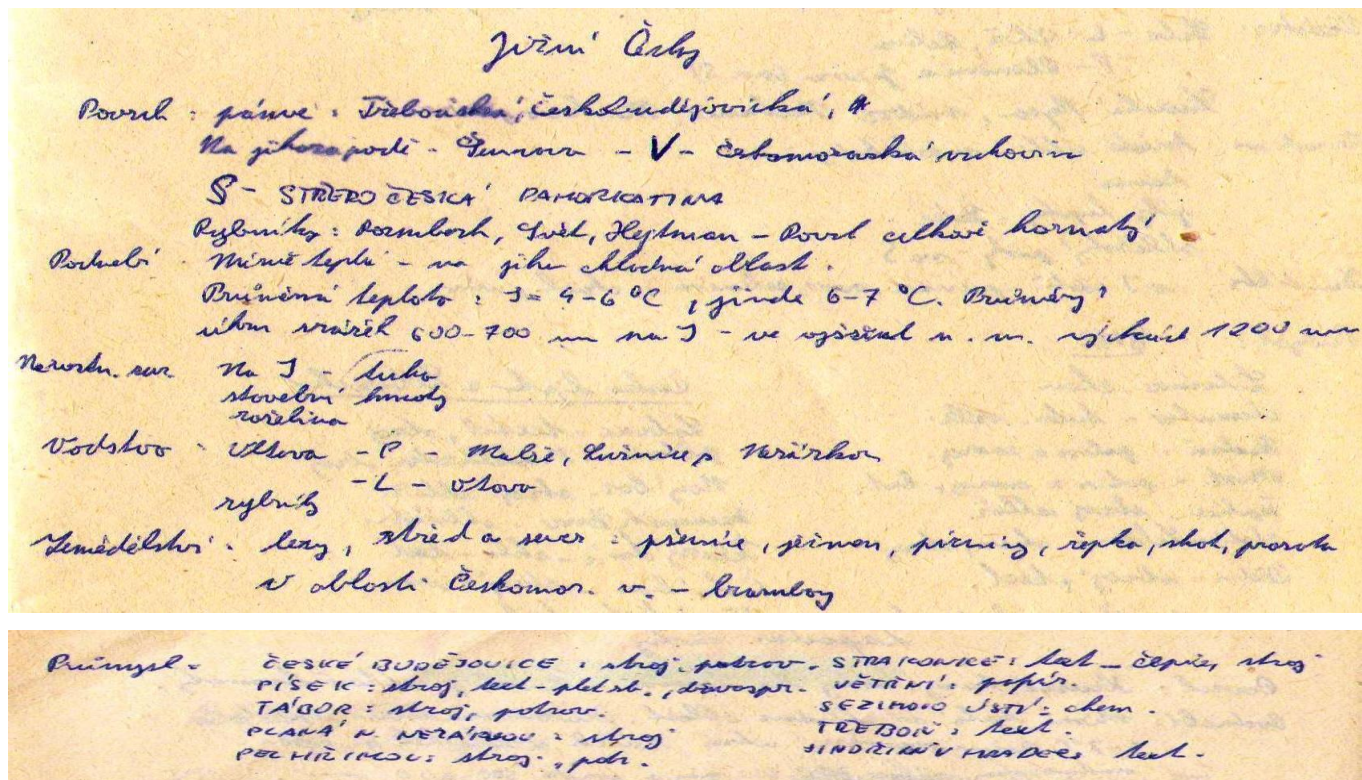 Jižní Čechy
Povrch : pánve : Třeboňská, Českobudějovická,
Na jihozápodě - Šumava - V - Českomoravská vrchovina
S - STŘEDOČESKÁ PAHORKATINA
Rybníky : Rozmberk, Svět, Hejtman - Povrch celkově hornatý
Podnebí - Mírně teplé - na jihu chladná oblast.
Průměrná teplota : J = 4-6 °C, jinde 6-7 °C. Průměrný
úhrn srážek 600-700 mm na J - ve výškách 1200 mm
Nerostn. sur. Na J - tuha
stavební hmoty
rašelina
Vodstvo - Vltava - P - Malše, Lužnice, Nežárkou
- L - Otava
rybníky
Zemědělství - lesy, střed a sever : pšenice, ječmen, pícniny, řepka, skot, prasata
v oblasti Českomor. v. - brambory
Průmysl - ČESKÉ BUDĚJOVICE : stroj. potrav. STRAKONICE : text - čepice, stroj
PÍSEK : stroj, text - plet. , dřevozpr. VĚTŘNÍ : papír.
TÁBOR : stroj, potrav. SEZIMOVO ÚSTÍ : chem.
PLANÁ N. NEŽÁRKOU : stroj TŘEBOŇ : text.
PELHŘIMOV : stroj., potr. JINDŘICHŮV HRADEC : text.